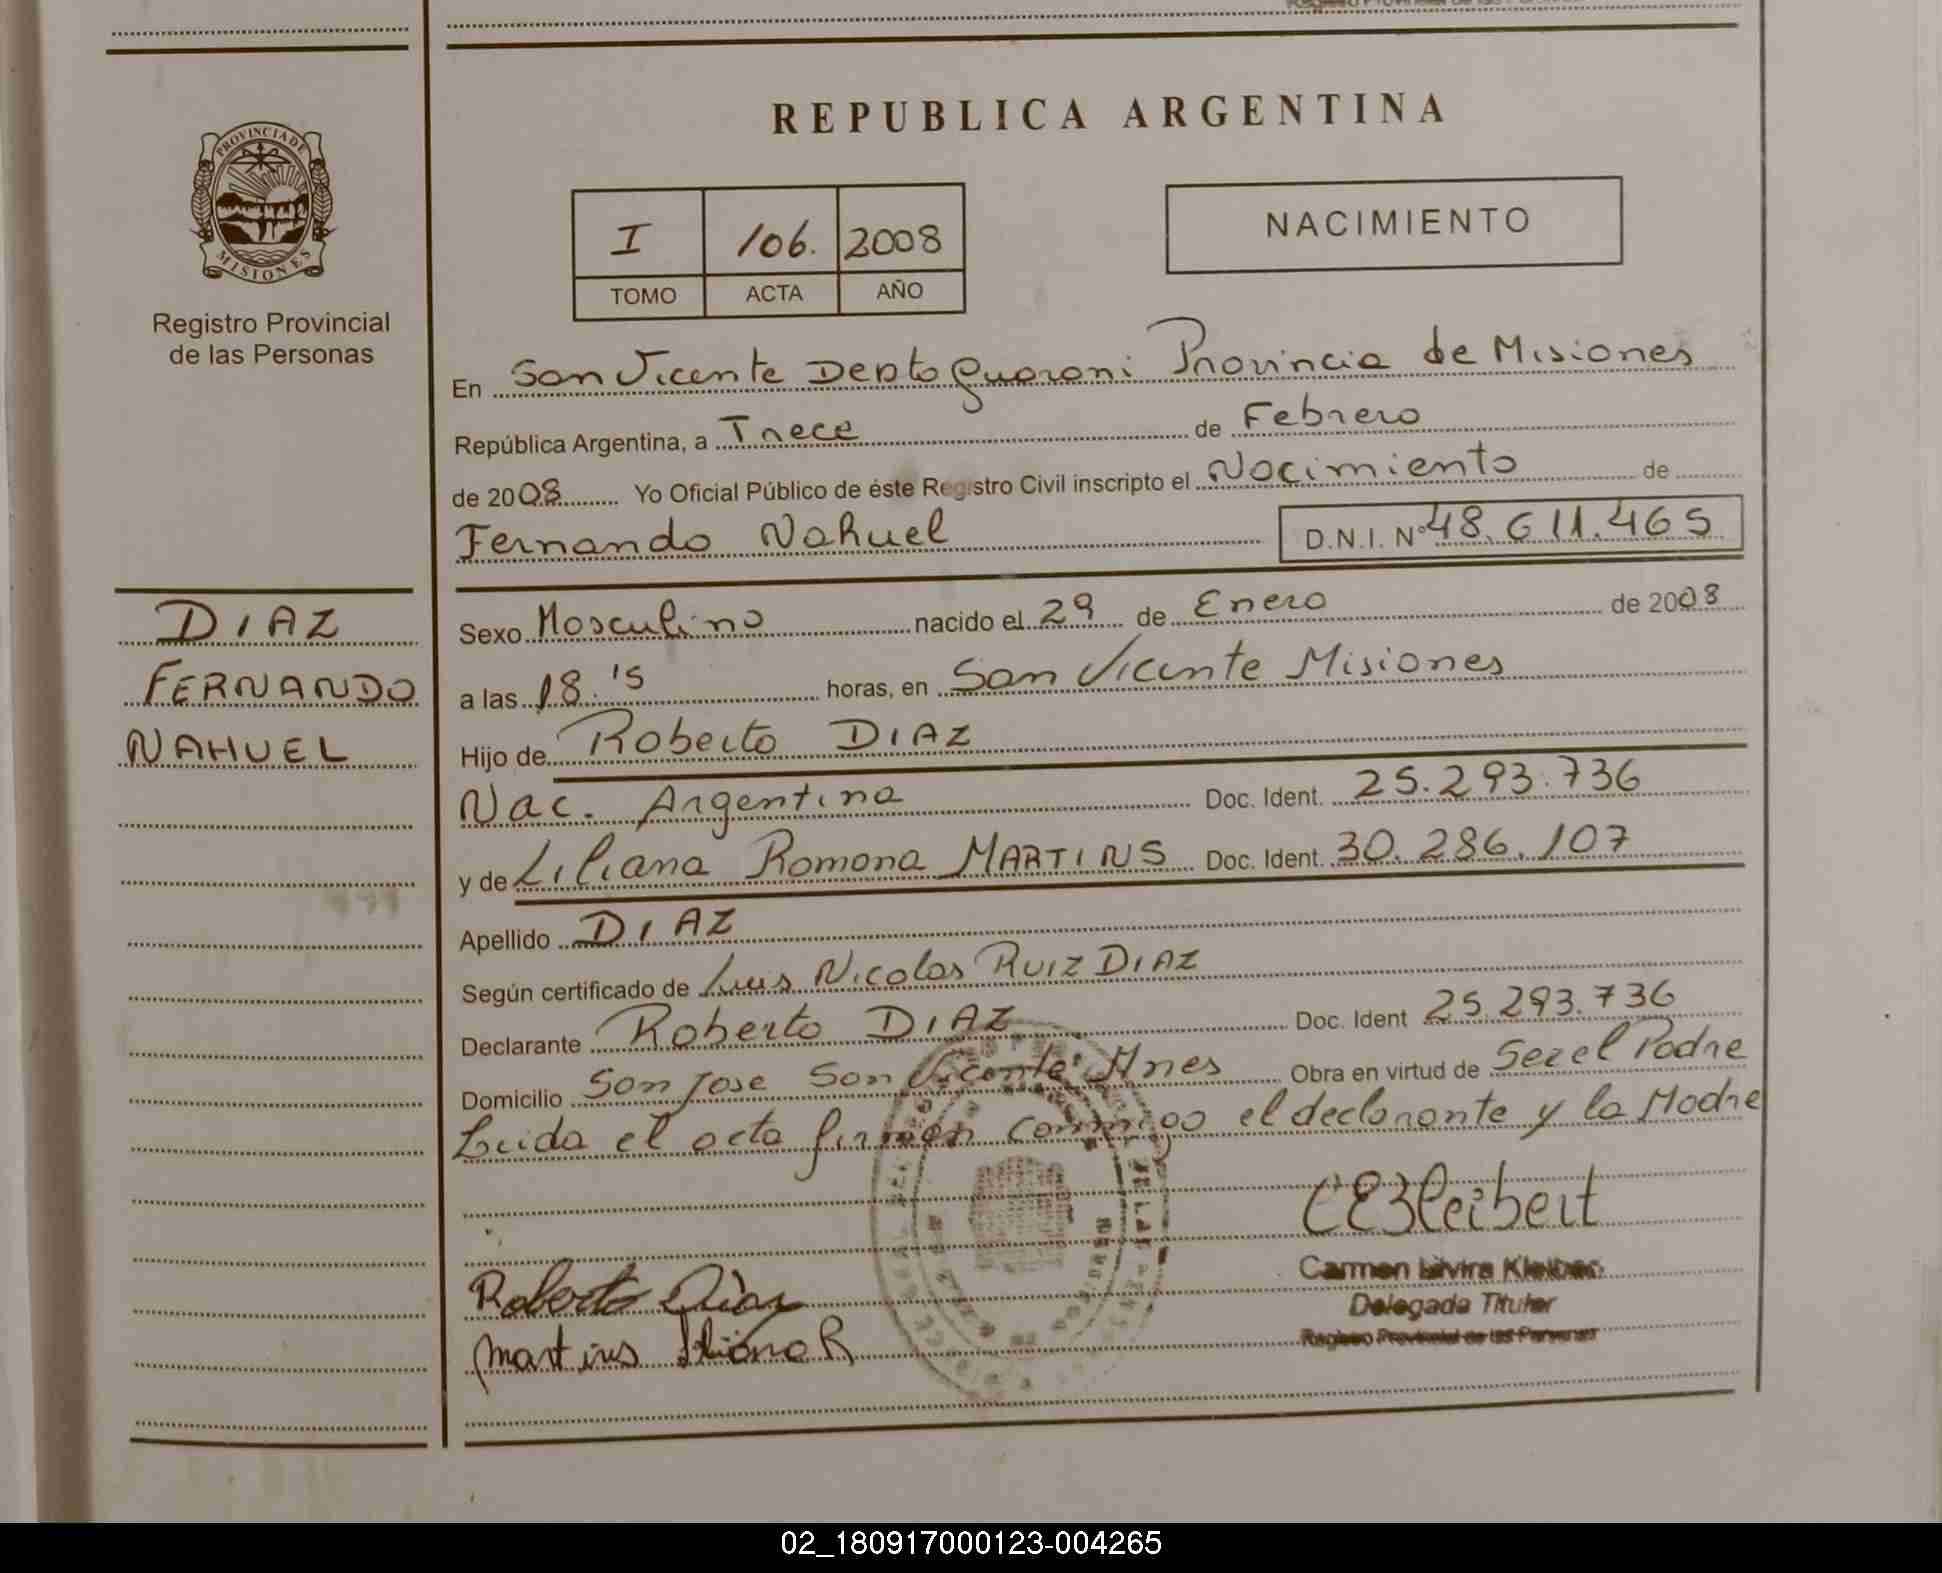 REPUBLICA ARGENTINA
PROVINCIA DE
MISIONES
Registro Provincial
de las Personas
I 106. 2008
TOMO ACTA AÑO
NACIMIENTO
En San Vicente Depto Guarani Provincia de Misiones
República Argentina, a Trece de Febrero
de 2008 Yo Oficial Público de éste Registro Civil inscripto el Nacimiento de
Fernando Nahuel D.N.I. Nº 48.611.465
DIAZ
FERNANDO
NAHUEL
Sexo Masculino nacido el 29 de Enero de 2008
a las 18.15 horas, en San Vicente Misiones
Hijo de Roberto DIAZ
Nac. Argentina Doc. Ident. 25.293.736
y de Liliana Ramona MARTINS Doc. Ident. 30.286.107
Apellido DIAZ
Según certificado de Luis Nicolas RUIZ DIAZ
Declarante Roberto DIAZ Doc. Ident 25.293.736
Domicilio San Jose San Vicente Mnes Obra en virtud de Ser el Padre
Leida el acta firman conmigo el declarante y la Madre
Roberto Diaz
Martins Liliana R
Carmen Kleiber
Delegada Titular
Registro Provincial de las Personas
02_180917000123-004265